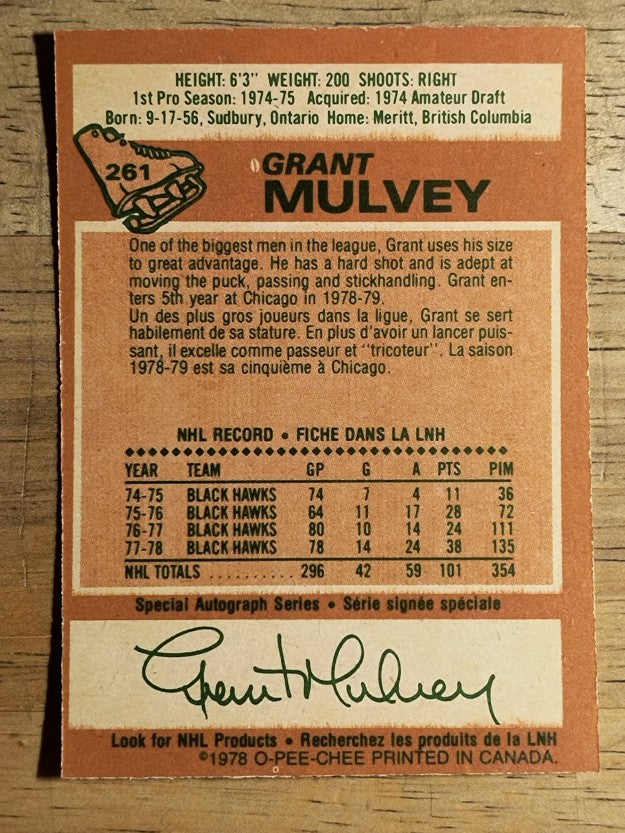 HEIGHT: 6'3" WEIGHT: 200 SHOOTS: RIGHT
1st Pro Season: 1974-75 Acquired: 1974 Amateur Draft
Born: 9-17-56, Sudbury, Ontario Home: Meritt, British Columbia
261
GRANT
MULVEY
One of the biggest men in the league, Grant uses his size
to great advantage. He has a hard shot and is adept at
moving the puck, passing and stickhandling. Grant en-
ters 5th year at Chicago in 1978-79.
Un des plus gros joueurs dans la ligue, Grant se sert
habilement de sa stature. En plus d'avoir un lancer puis-
sant, il excelle comme passeur et "tricoteur". La saison
1978-79 est sa cinquième à Chicago.
NHL RECORD • FICHE DANS LA LNH
YEAR TEAM GP G A PTS PIM
74-75 BLACK HAWKS 74 7 4 11 36
75-76 BLACK HAWKS 64 11 17 28 72
76-77 BLACK HAWKS 80 10 14 24 111
77-78 BLACK HAWKS 78 14 24 38 135
NHL TOTALS .......... 296 42 59 101 354
Special Autograph Series • Série signée spéciale
Grant Mulvey
Look for NHL Products • Recherchez les produits de la LNH
©1978 O-PEE-CHEE PRINTED IN CANADA.